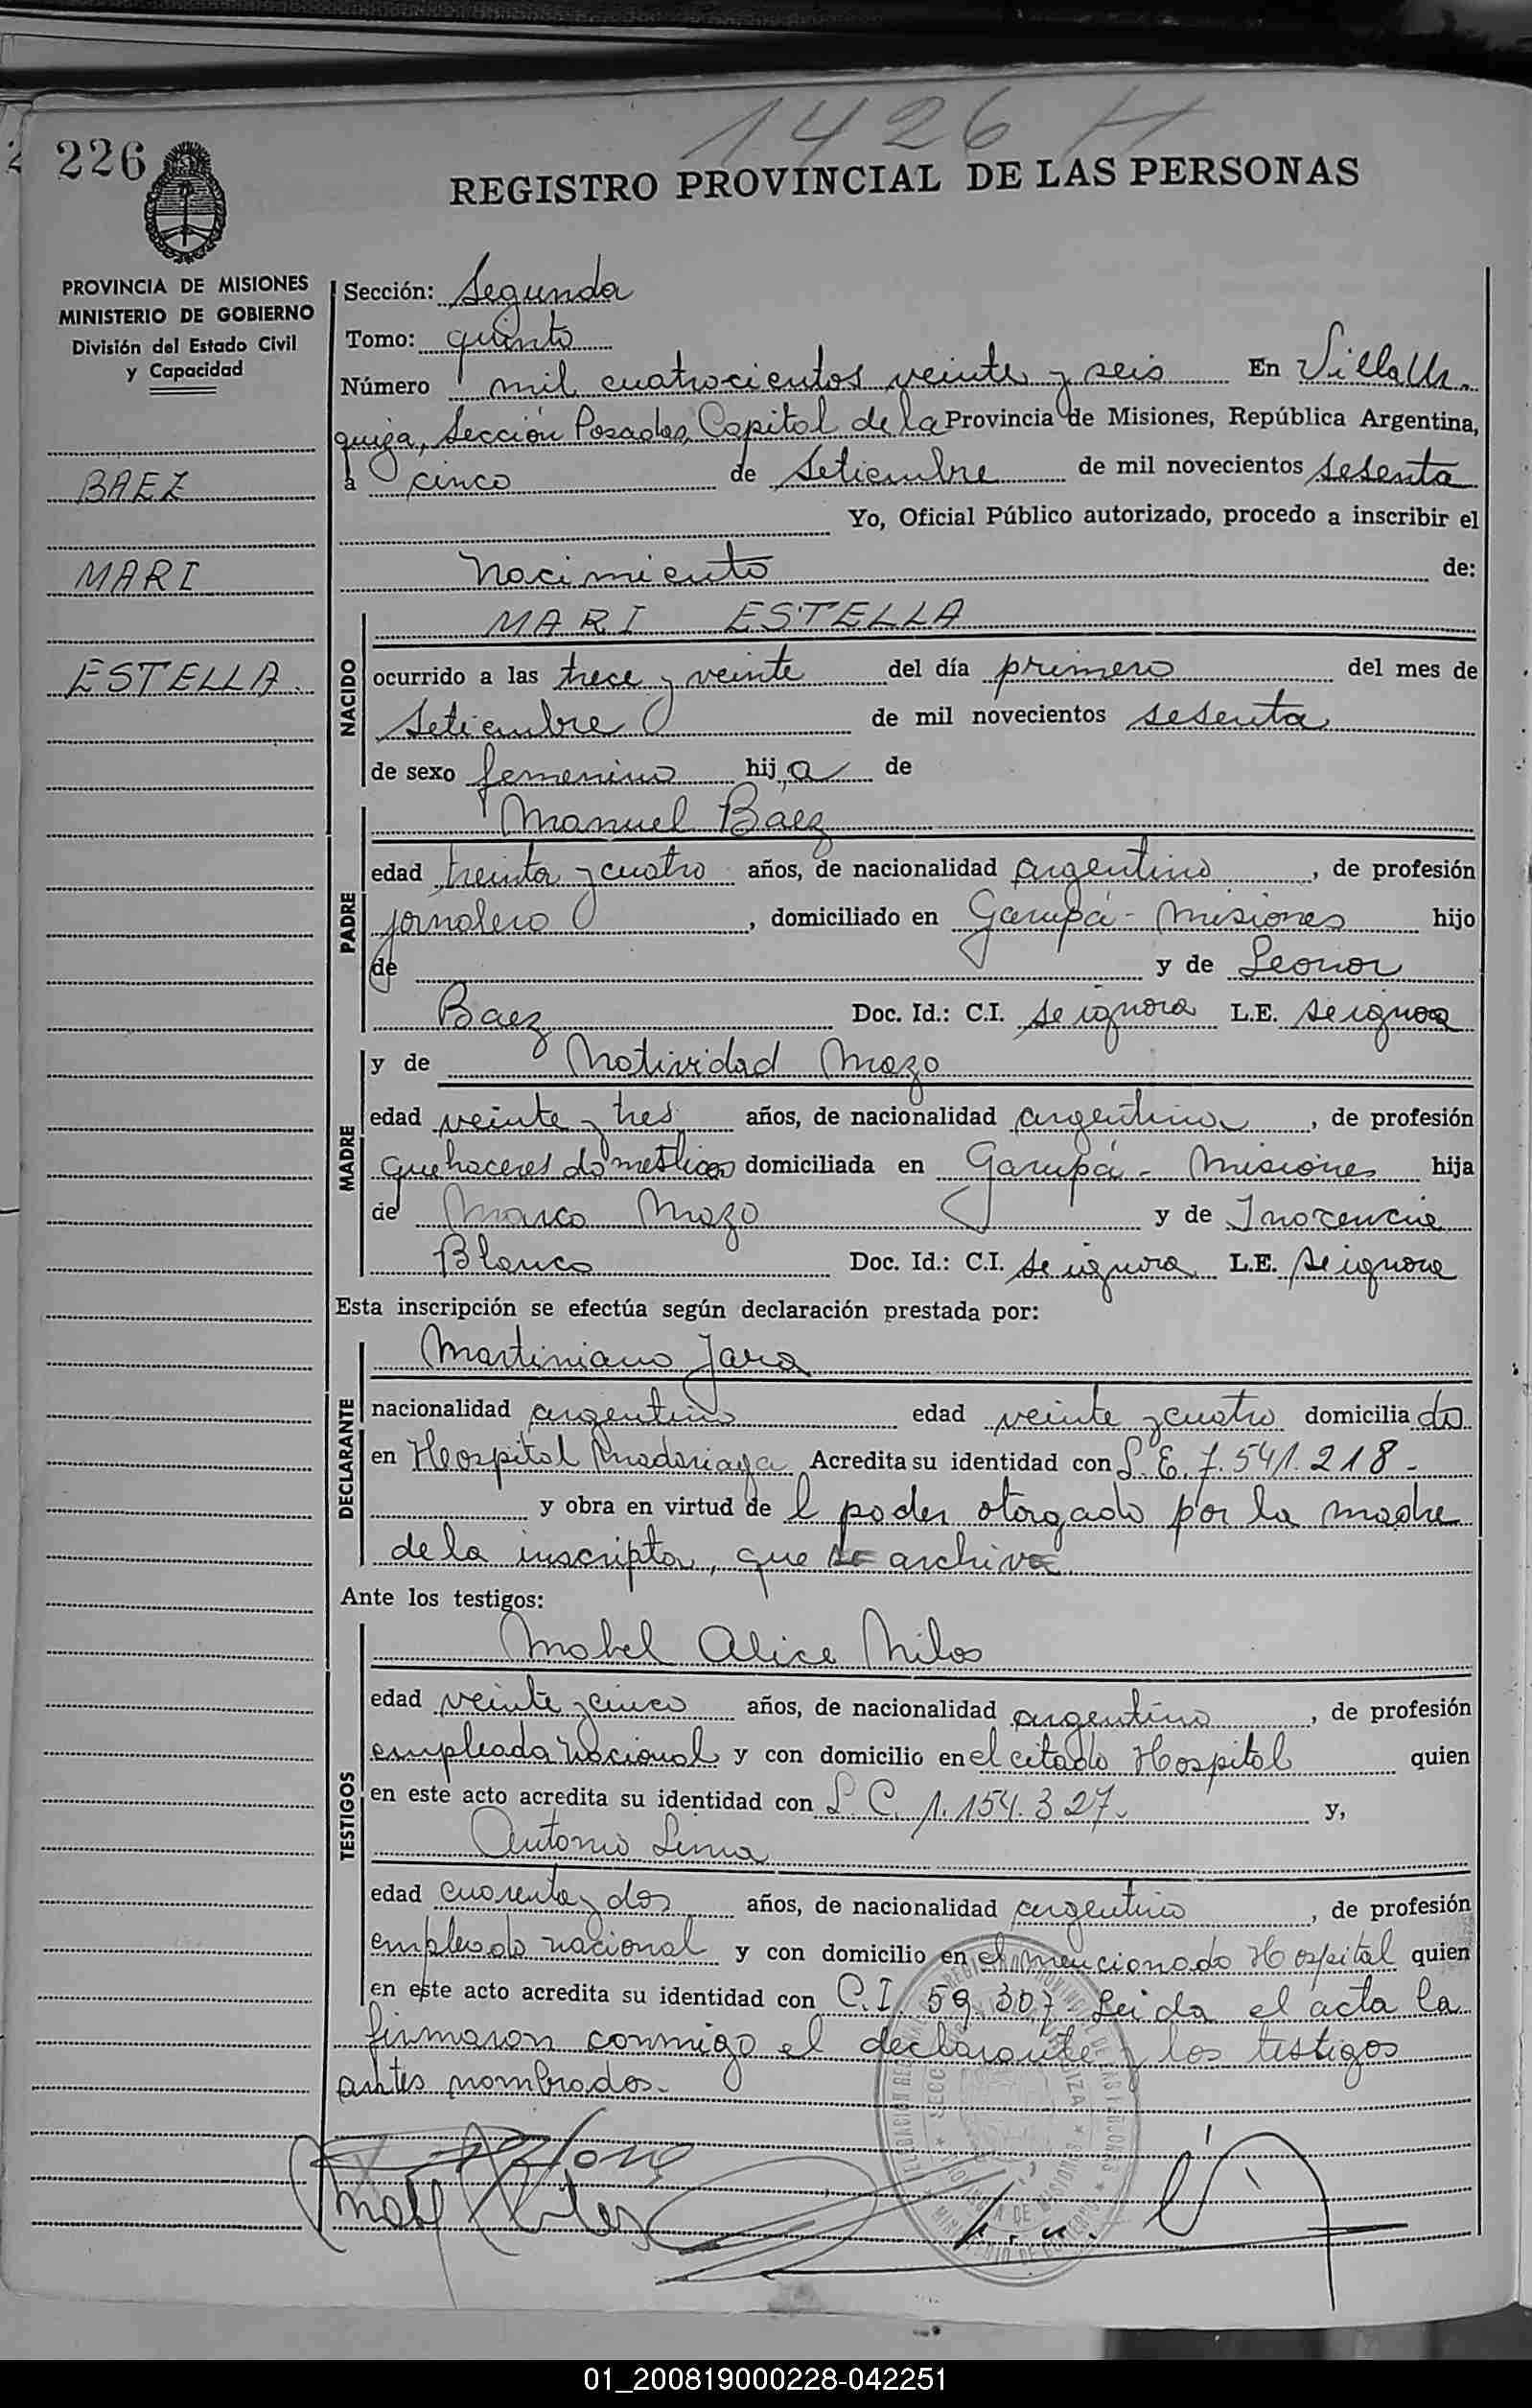 1426 H
226
REGISTRO PROVINCIAL DE LAS PERSONAS
PROVINCIA DE MISIONES
MINISTERIO DE GOBIERNO
División del Estado Civil
y Capacidad
BAEZ
MARI
ESTELLA.
Sección: Segunda
Tomo: quinto
Número mil cuatrocientos veinte y seis En Villa Ur-
quiza, Sección Posadas, Capital de la Provincia de Misiones, República Argentina,
a cinco de Setiembre de mil novecientos sesenta
Yo, Oficial Público autorizado, procedo a inscribir el
Nacimiento de:
NACIDO
MARI ESTELLA
ocurrido a las trece y veinte del día primero del mes de
Setiembre de mil novecientos sesenta
de sexo femenino hija de
PADRE
Manuel Baez
edad treinta y cuatro años, de nacionalidad argentino, de profesión
jornalero, domiciliado en Garupá - Misiones hijo
de y de Leonor
Baez Doc. Id.: C.I. se ignora L.E. se ignora
MADRE
y de Natividad Mozo
edad veinte y tres años, de nacionalidad argentina, de profesión
quehaceres domésticos domiciliada en Garupá - Misiones hija
de Marco Mozo y de Inocencia
Blanco Doc. Id.: C.I. se ignora L.E. se ignora
Esta inscripción se efectúa según declaración prestada por:
DECLARANTE
Martiniano Jara
nacionalidad argentino edad veinte y cuatro domiciliado
en Hospital Madariaga Acredita su identidad con L.E. 7.541.218-
y obra en virtud del poder otorgado por la madre
de la inscripta, que se archiva.
Ante los testigos:
TESTIGOS
Mabel Alice Nilos
edad veinte y cinco años, de nacionalidad argentina, de profesión
empleada nacional y con domicilio en el citado Hospital quien
en este acto acredita su identidad con L.C. 1.154.327- y,
Antonio Lima
edad cuarenta y dos años, de nacionalidad argentino, de profesión
empleado nacional y con domicilio en el mencionado Hospital quien
en este acto acredita su identidad con C.I. 59.307. Leida el acta la
firmaron conmigo el declarante y los testigos
antes nombrados.-
01_200819000228-042251